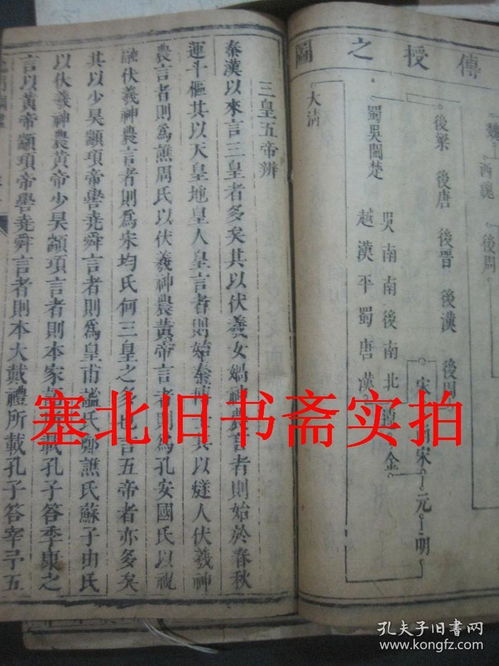 傳授之圖
西魏 後周
後梁 後唐 後晉 後漢 後周
宋 南宋 元 明
金
吳南南後南北
越漢平蜀唐漢
蜀吳閩楚
大清
三皇五帝辨
秦漢以來言三皇者多矣其以伏羲女媧神農言者則始於春秋
運斗樞其以天皇地皇人皇言者則始秦其以燧人伏羲神
農言者則為譙周氏以伏羲神農黃帝言者則為孔安國氏以祝
融伏羲神農言者則為宋均氏何三皇之多也言五帝者亦多矣
其以少昊顓頊帝嚳堯舜言者則為皇甫謐氏鄭譙氏蘇子由氏
以伏羲神農黃帝少昊顓頊言者則本家載孔子答季康之
言以黃帝顓頊帝嚳堯舜言者則本大戴禮所載孔子答宰予五
塞北旧书斋实拍
孔夫子旧书网
www.kongfz.com